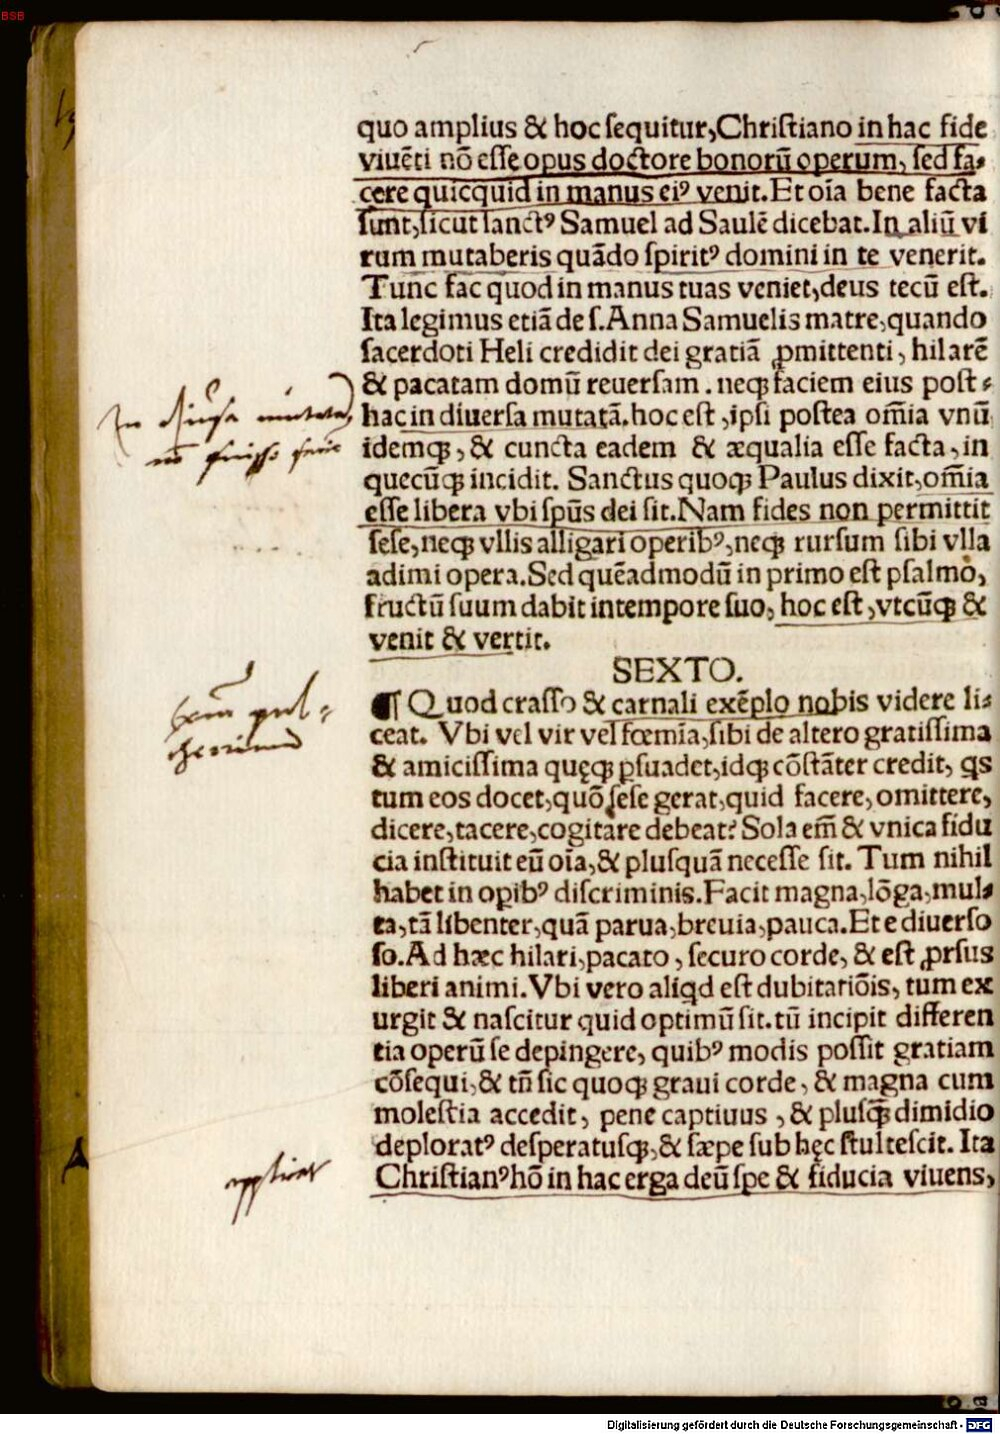 BSB
quo amplius & hoc ſequitur, Chriſtiano in hac fide
viuẽti nõ eſſe opus doctore bonorũ operum, ſed fa⸗
cere quicquid in manus eiꝰ venit. Et oĩa bene facta
ſunt, ſicut ſanctꝰ Samuel ad Saulẽ dicebat. In aliũ vi
rum mutaberis quãdo ſpiritꝰ domini in te venerit.
Tunc fac quod in manus tuas veniet, deus tecũ eſt.
Ita legimus etiã de ſ. Anna Samuelis matre, quando
ſacerdoti Heli credidit dei gratiã ꝓmittenti, hilarẽ
& pacatam domũ reuerſam. neqꝫ faciem eius poſt⸗
hac in diuerſa mutatã. hoc eſt, ipſi poſtea om̃ia vnũ
idemqꝫ, & cuncta eadem & æqualia eſſe facta, in
quecũqꝫ incidit. Sanctus quoqꝫ Paulus dixit, om̃ia
eſſe libera vbi ſpũs dei ſit. Nam fides non permittit
ſeſe, neqꝫ vllis alligari operibꝰ, neqꝫ rurſum ſibi vlla
adimi opera. Sed quẽadmodũ in primo eſt pſalmo,
fructũ ſuum dabit in tempore ſuo, hoc eſt, vtcũqꝫ &
venit & vertit.
SEXTO.
¶ Quod craſſo & carnali exẽplo nobis videre li⸗
ceat. Vbi vel vir vel fœmĩa, ſibi de altero gratiſſima
& amiciſſima quęqꝫ ꝑſuadet, idqꝫ cõſtãter credit, qs
tum eos docet, quõ ſeſe gerat, quid facere, omittere,
dicere, tacere, cogitare debeat? Sola em̃ & vnica fidu
cia inſtituit eũ oĩa, & pluſquã neceſſe ſit. Tum nihil
habet in oꝑibꝰ diſcriminis. Facit magna, lõga, mul⸗
ta, tã libenter, quã parua, breuia, pauca. Et e diuerſo
ſo. Ad hæc hilari, pacato, ſecuro corde, & eſt ꝓrſus
liberi animi. Vbi vero aliqd eſt dubitatiõis, tum ex
urgit & naſcitur quid optimũ ſit. tũ incipit differen
tia operũ ſe depingere, quibꝰ modis poſſit gratiam
cõſequi, & tñ ſic quoqꝫ graui corde, & magna cum
moleſtia accedit, pene captiuus, & pluſq̃ dimidio
deploratꝰ deſperatuſqꝫ, & ſæpe ſub hęc ſtulteſcit. Ita
Chriſtianꝰ hõ in hac erga deũ ſpe & fiducia viuens,
In diuſa mutata
applicat
Digitalisierung gefördert durch die Deutsche Forschungsgemeinschaft - DFG